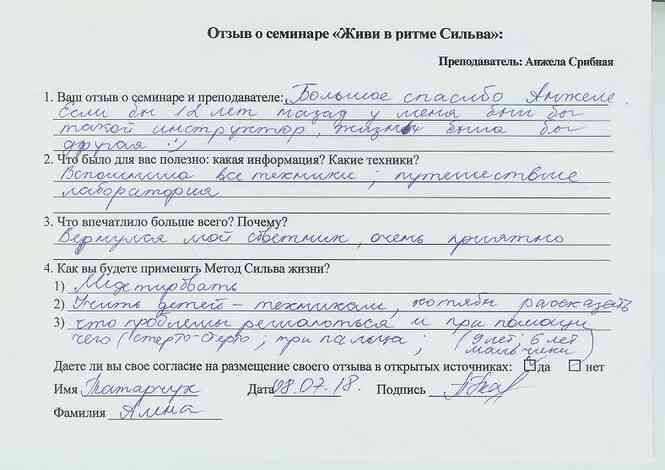 Отзыв о семинаре «Живи в ритме Сильва»:
Преподаватель: Анжела Срибная
1. Ваш отзыв о семинаре и преподавателе: Большое спасибо Анжеле.
Если бы 12 лет назад у меня был бы
такой инструктор, жизнь была бы
другая :)
2. Что было для вас полезно: какая информация? Какие техники?
Вспомнила все техники; путешествие
лаборатория
3. Что впечатлило больше всего? Почему?
Вернулся мой советник, очень приятно
4. Как вы будете применять Метод Сильва жизни?
1)
2) Учить детей – техникам, хотябы рассказать
3) что проблемы решаються и при помощи
чего (стерто-стерто; три пальца; (9 лет; 6 лет
мальчики)
Даете ли вы свое согласие на размещение своего отзыва в открытых источниках: да нет
Имя Татарчук Дата 08.07.18. Подпись
Фамилия Алена